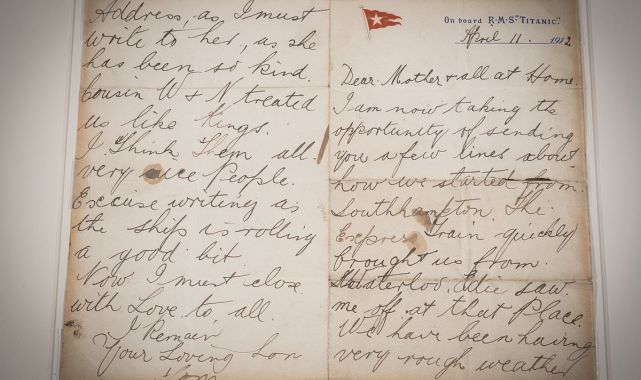 Address, as, I must
write to her, as she
has been so kind.
Cousin W & N treated
us like Kings.
I Think Them all
very nice People.
Excuse writing as
the ship is rolling
a good bit.
Now I must close
with Love to all.
I Remain
Your Loving Son
On board R.M.S "TITANIC".
April 11. 1912
Dear Mother & all at Home.
I am now taking the
opportunity of sending
you a few lines about
how we started from
Southhampton The
Express Train quickly
brought us from
Waterloo. Ellie saw
me off at that Place.
We have been having
very rough weather